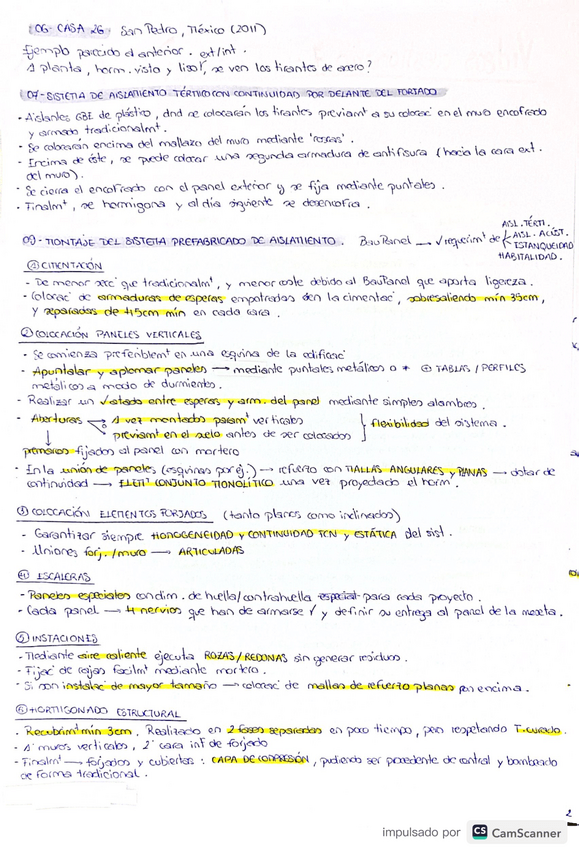 06- CASA 26: San Pedro, México (2011)
Ejemplo parecido al anterior. ext/int.
1 planta, horm. visto y liso!, se ven los tirantes de acero?
07- SISTEMA DE AISLAMIENTO TÉRMICO CON CONTINUIDAD POR DELANTE DEL FORJADO
- Aislantes de plástico, dnd se colocarán los tirantes previamt a su colocacº en el muro encofrado
y armado tradicionalmt.
- Se colocarán encima del mallazo del muro mediante 'roscas'.
- Encima de éste, se puede colocar una segunda armadura de antifisura (hacia la cara ext.
del muro).
- Se cierra el encofrado con el panel exterior y se fija mediante puntales.
- Finalmt, se hormigona y al día siguiente se desencofra.
09- MONTAJE DEL SISTEMA PREFABRICADO DE AISLAMIENTO. BauPanel → √ requerimt de
AISL. TÉRMI.
AISL. ACÚST.
ESTANQUEIDAD
HABITALIDAD.
① CIMENTACIÓN
- De menor que tradicionalmt, y menor coste debido al BauPanel que aporta ligereza.
- Colocacº de armaduras de esperas empotradas en la cimentacº, sobresaliendo mín 35cm,
y separadas de 45cm mín en cada cara.
② COLOCACIÓN PANELES VERTICALES
- Se comienza preferiblemt en una esquina de la edificacº
- Apuntalar y aplomar paneles → mediante puntales metálicos o + ⊕ TABLAS / PERFILES
metálicos a modo de durmientes.
- Realizar un √ atado entre esperas y arm. del panel mediante simples alambres.
- Aberturas 1 vez montados paramt verticales
previamt en el suelo antes de ser colocados } flexibilidad del sistema.
premarcos fijados al panel con mortero
- En la unión de paneles (esquinas por ej.) → refuerzo con MALLAS ANGULARES y PLANAS → dotar de
continuidad → ELEMt CONJUNTO MONOLÍTICO una vez proyectado el horm.
③ COLOCACIÓN ELEMENTOS FORJADOS (tanto planos como inclinados)
- Garantizar siempre HOMOGENEIDAD y CONTINUIDAD TCN y ESTÁTICA del sist.
- Uniones forj./muro → ARTICULADAS
④ ESCALERAS
- Paneles especiales con dim. de huella/contrahuella especial para cada proyecto.
- Cada panel → 4 nervios que han de armarse √ y definir su entrega al panel de la meseta.
⑤ INSTACIONES
- Mediante aire caliente ejecuta ROZAS/REDONAS sin generar residuos.
- Fijacº de cajas facilmt mediante mortero.
- Si son instalacº de mayor tamaño → colocacº de mallas de refuerzo planas por encima.
⑥ HORMIGONADO ESTRUCTURAL
- Recubrimt mín 3cm. Realizado en 2 fases separadas en poco tiempo, pero respetando T.curado.
- 1º muros verticales, 2º cara inf de forjado
- Finalmt → forjados y cubiertas: CAPA DE COMPRESIÓN, pudiendo ser procedente de central y bombeado
de forma tradicional.
2
impulsado por CS CamScanner